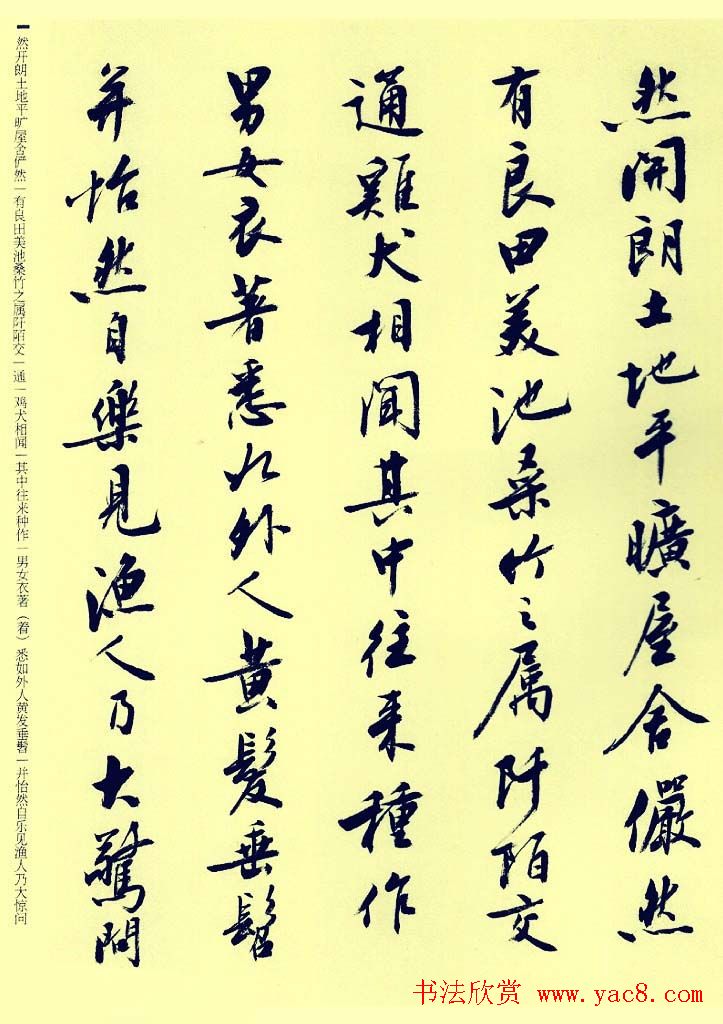 然開朗土地平曠屋舍儼然
有良田美池桑竹之属阡陌交
通雞犬相聞其中往来種作
男女衣著悉如外人黄髮垂髫
并怡然自樂見漁人乃大驚問
然开朗土地平旷屋舍俨然|有良田美池桑竹之属阡陌交|通|鸡犬相闻|其中往来种作|男女衣著（着）悉如外人黄发垂髫|并怡然自乐见渔人乃大惊问
书法欣赏 www.yac8.com